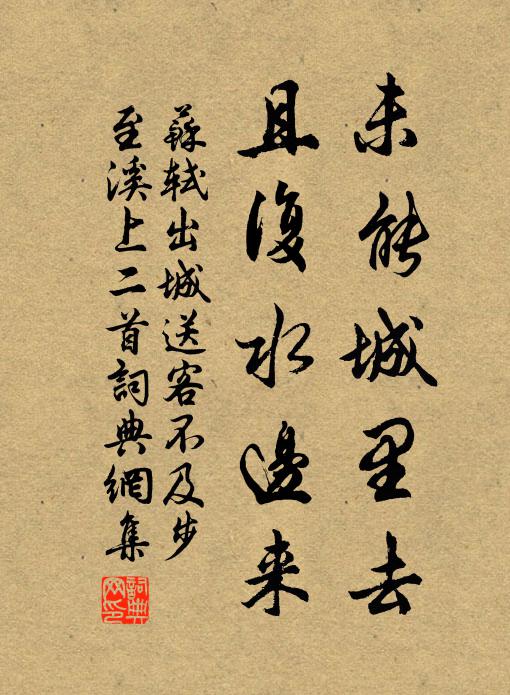 未能城里去
且復水邊来
蘇軾出城送客不及步
至溪上二首詞典網集
詞典網印